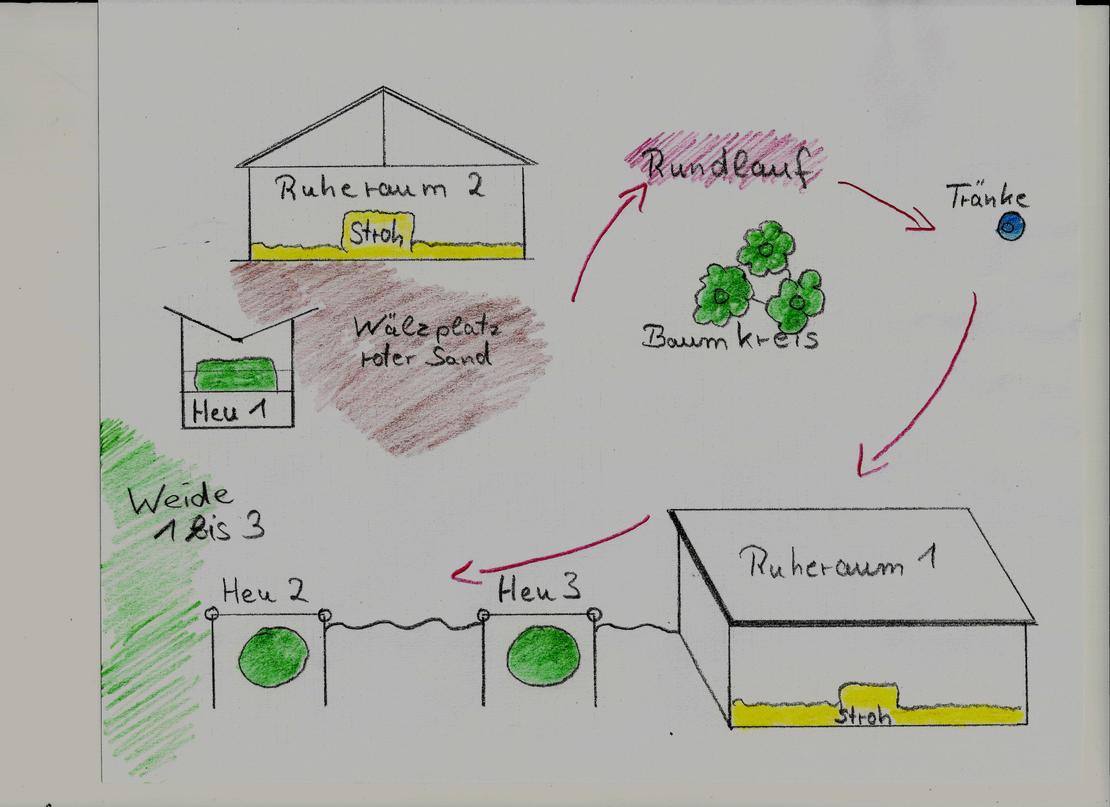 Rundlauf
Ruheraum 2
Tränke
Stroh
Wälzplatz
roter Sand
Baumkreis
Heu 1
Weide
1 bis 3
Ruheraum 1
Heu 2
Heu 3
Stroh